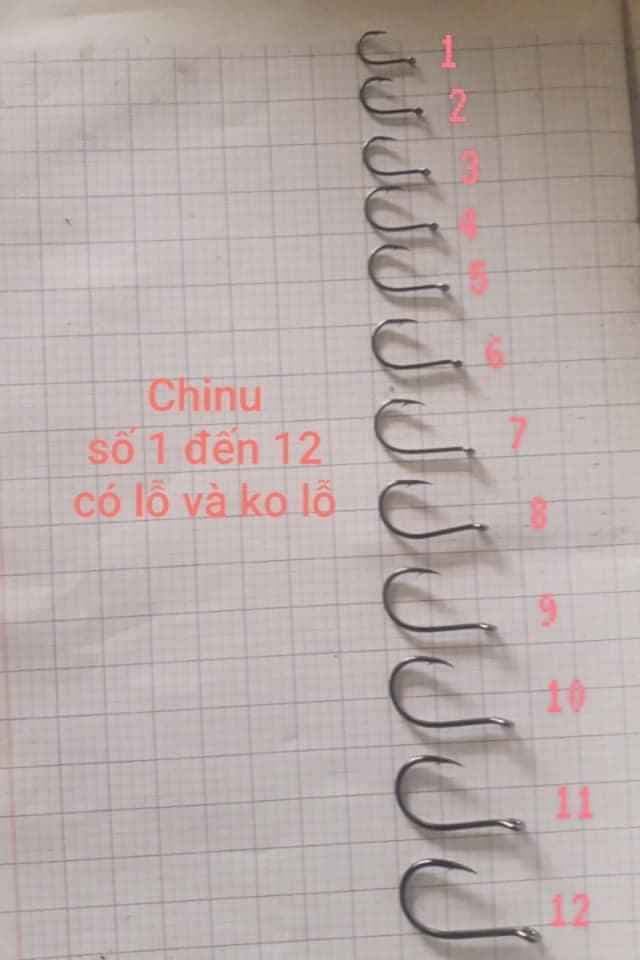 1
2
3
4
5
6
Chinu
số 1 đến 12
có lỗ và ko lỗ
7
8
9
10
11
12